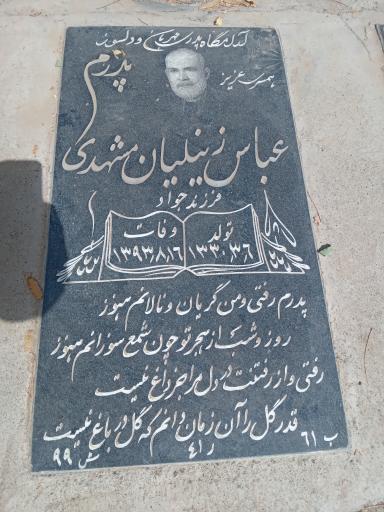 آرامگاه پدری مهربان و دلسوز
همسر عزیز
پدرم
عباس زینلیان مشهدی
فرزند جواد
تولد
وفات
۱۳۳۰/۳/۶
۱۳۹۳/۸/۱۶
پدرم رفتی و من گریان و نالانم هنوز
روز و شب از هجر تو چون شمع سوزانم هنوز
رفتی و از رفتنت در دل مرا جز داغ نیست
قدر گل را آن زمان دانم که گل در باغ نیست
ب ۶۱
ر ۴۱
ش ۹۹